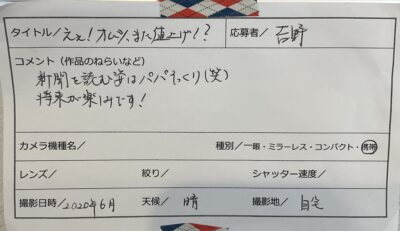 タイトル／えぇ！オムツ、また値上げ！？ 応募者／吉野
コメント（作品のねらいなど）
新聞を読む姿はパパそっくり（笑）
将来が楽しみです！
カメラ機種名／ 種別／一眼・ミラーレス・コンパクト・携帯
レンズ／ 絞り／ シャッター速度／
撮影日時／2020年6月 天候／晴 撮影地／自宅